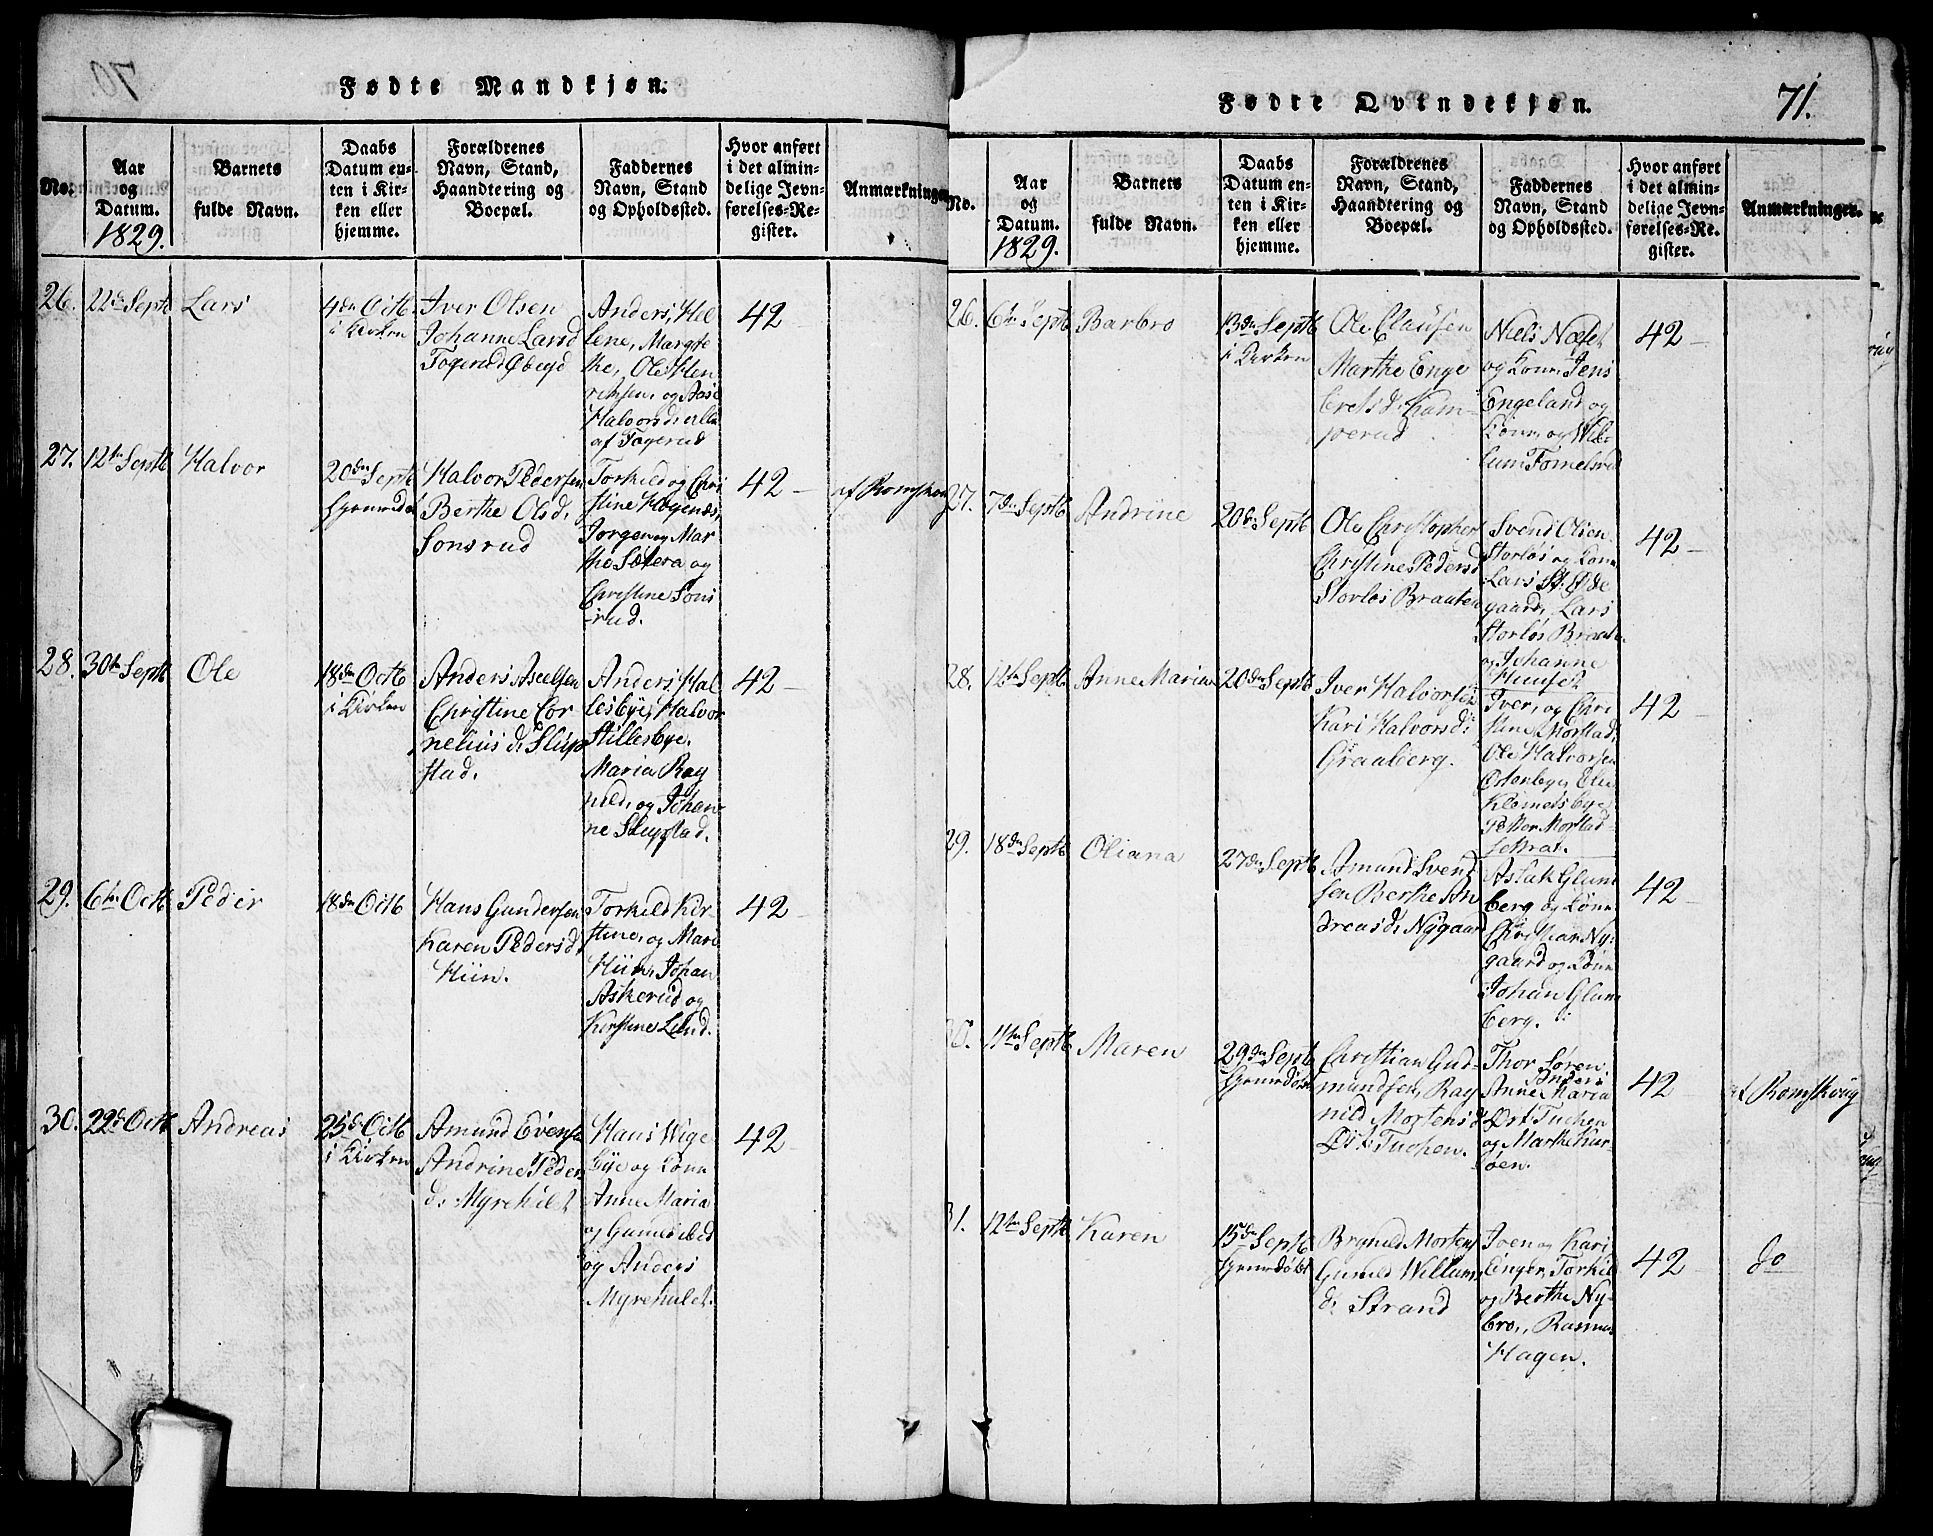 Fødte Mandkjøn.
No.
Aar
og
Datum.
1829.
Barnets
fulde Navn.
Daabs
Datum en-
ten i Kir-
ken eller
hjemme.
Forældrenes
Navn, Stand,
Haandtering og
Boepæl.
Faddernes
Navn, Stand
og Opholdssted.
Hvor anført
i det almin-
delige Jevn-
førelses-Re-
gister.
Anmærkninger
26.
22de Septb
Lars
4de Octb.
i Kirken
Iver Olsen
Johanne Larsd
Togerud
Anders, Hel
lene, Margre
the, Ole Hen
richsen, og
Halvorsd. alle
af Togerud
42
27.
12te Septb
Halvor
20de Septb
hjemmedøbt
Halvor Pedersen
Berthe Olsd.
Sonsrud
Torkild og Chri
stine
Jørgen og Mar
the Sætera og
Christine Sons
rud.
42
af Romskou
28.
30te Septb
Ole
18de Octb
i Kirken
Anders Axelsen
Christine Cor
nelius d. Slup
stad.
Anders Hal
lesbye, Halvor
Stillesbye.
Maria Rag
nild, og Johan
ne Slupstad.
42
29.
6te Octb
Peder
18de Octb
Hans Gundersen
Karen Pedersd.
Hiin.
Torkild Kir
stine, og Mari
Hiin, Johan
Askerud og
Kirstine Lund.
42
30.
22de Octb
Andreas
25de Octb
i Kirken
Amund Evensen
Andrine Peders
d. Myrehulet
Hans Wige
bye og Kone
Anne Maria
og
og Anders
Myrehulet.
42
Fødte Qvindekjøn.
71.
No.
Aar
og
Datum.
1829.
Barnets
fulde Navn.
Daabs
Datum en-
ten i Kir-
ken eller
hjemme.
Forældrenes
Navn, Stand,
Haandtering og
Boepæl.
Faddernes
Navn, Stand
og Opholdssted.
Hvor anført
i det almin-
delige Jevn-
førelses-Re-
gister.
Anmærkninger.
26.
6te Septb
Barbro
13de Septb
i Kirken
Ole Clausen
Marthe Enge
bretsd. Kam-
perud
Niels Næset
og Kone, Jens
Engeland og
Kone, og Wil-
lum Tomelsrud
42
27.
7de Septb
Andrine
20de Septb
Ole Christopher
Christine Pedersd
Storløs Braaten
Svend Olsen
Storløs og Kone
Lars St. Øde
gaard, Lars
Storløs Braate.
og Johanne
Huuset
42
28.
12te Septb
Anne Maria
20de Septb
Iver Halvorsen
Kari Halvorsd:
Graaberg.
Iver, og Chri
stine Morstad,
Ole Halvorsen
Østenbye, Ole
Klemetsbye
Petter Morstad-
sætrat.
42
29.
18de Septb
Oliana
27de Septb
Amund Svend
sen Berthe An
dreasd. Nygaard
Aslak Glum
berg og Kone
Christian Ny-
gaard og Kone
Johan Glum
berg.
42
30.
11te Septb
Maren
29de Septb
hjemmedøbt
Christian Gud-
mundsen, Rag
nild Mortensd
Øst. Tuchen.
Thor Søren
Anders
Anne Maria
Øst Tuchen
og Marthe Kur-
øen.
42
af Romskoug
31.
12te Septb
Karen
15de Septb
hjemmedøbt
Brynild Mortens
Gunild Willums
d. Strand
Iver og Kari
Enger, Torkil
og Berthe Ny-
bro., Rasmus
Hagen.
42
do